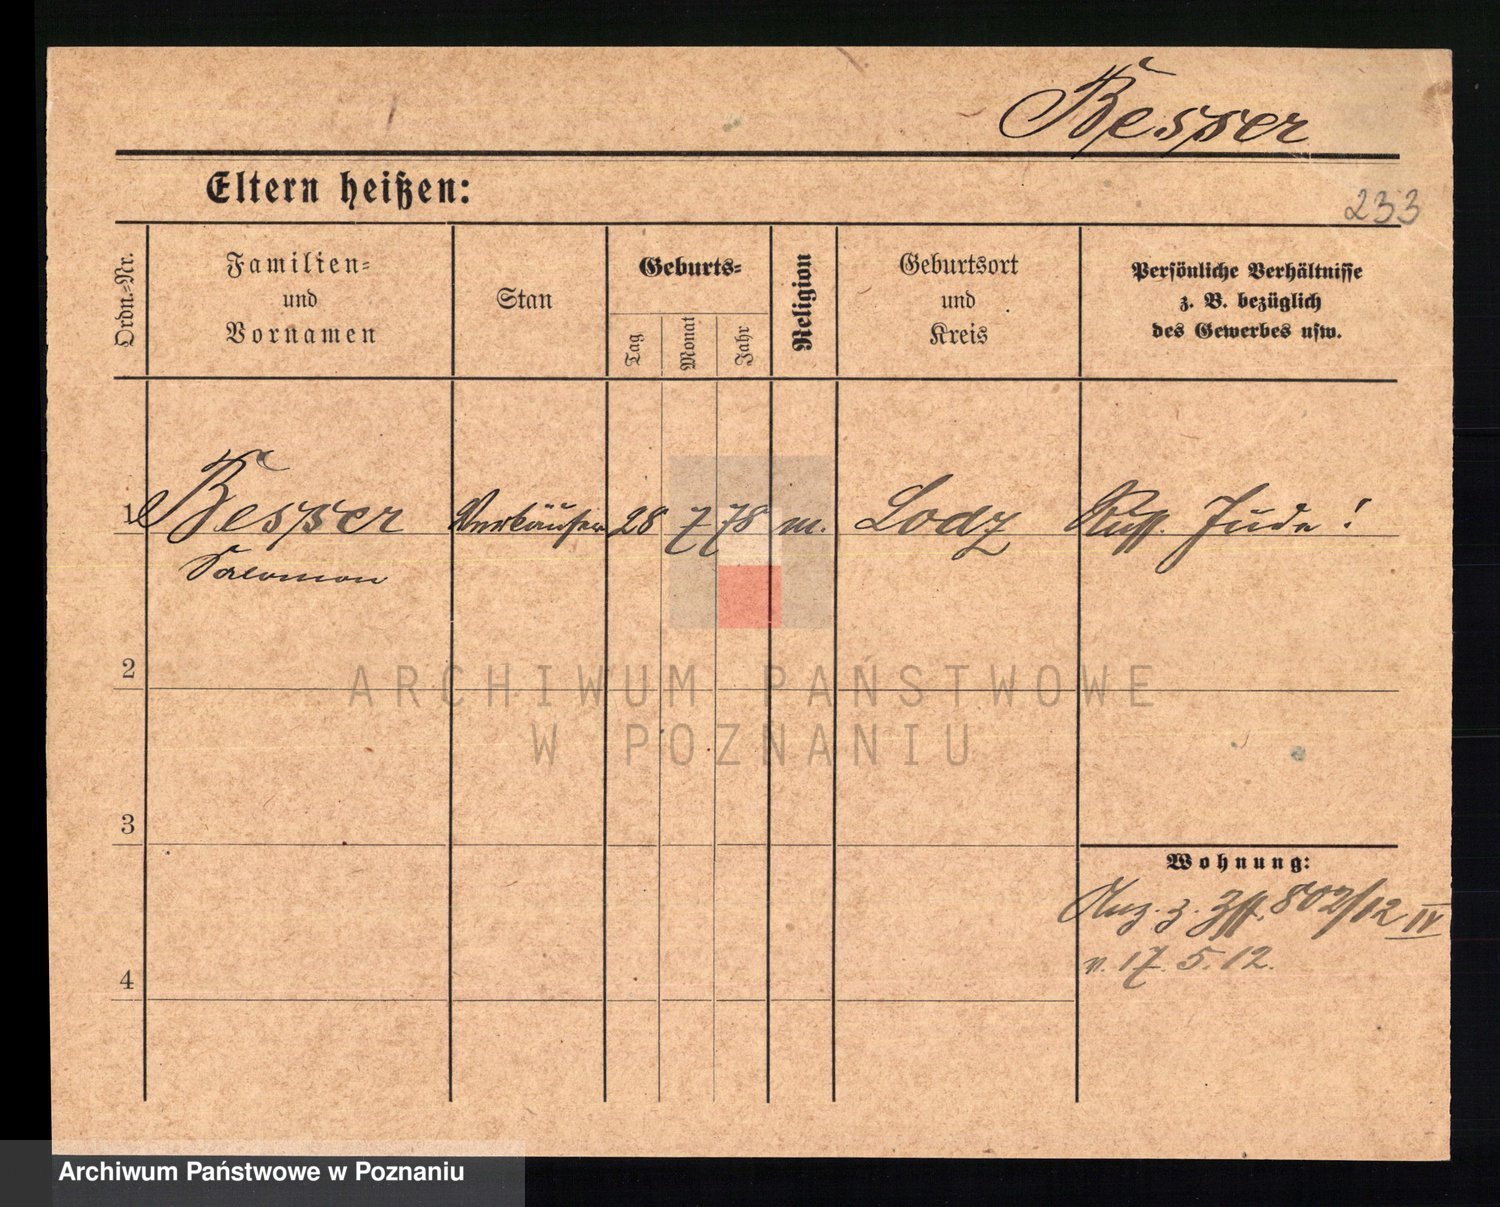 Besser
Eltern heißen:
233
Ordn.=Nr.
Familien=
und
Vornamen
Stan
Geburts=
Tag
Monat
Jahr
Religion
Geburtsort
und
Kreis
Persönliche Verhältnisse
z. B. bezüglich
des Gewerbes usw.
1 Besser Verkäufer 28 7 78 m. Lodz Russ. Jude!
Salomon
2
ARCHIWUM PAŃSTWOWE
W POZNANIU
3
Wohnung:
Anz. z. 802/12 IV
v. 17. 5. 12.
4
Archiwum Państwowe w Poznaniu